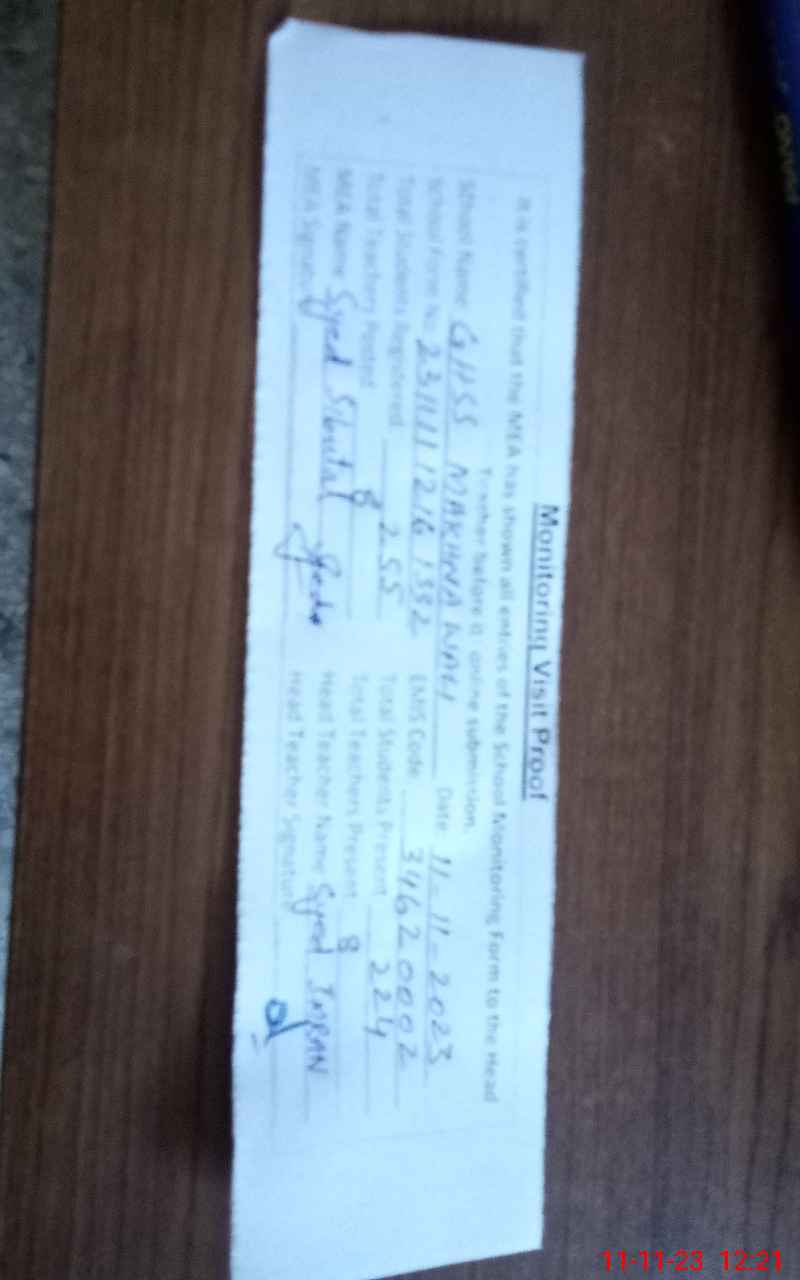 Monitoring Visit Proof
It is certified that the MEA has shown all entries of the School Monitoring Form to the Head
Teacher before it online submission.
School Name: GHSS MAKHNA WALI Date 11-11-2023
School Form No: EMIS Code 34620002
Total Students Registered 255 Total Students Present 224
Total Teachers Posted 8 Total Teachers Present 8
MEA Name Syed Head Teacher Name Syed IMRAN
MEA Signature Head Teacher Signature
11-11-23 12:21